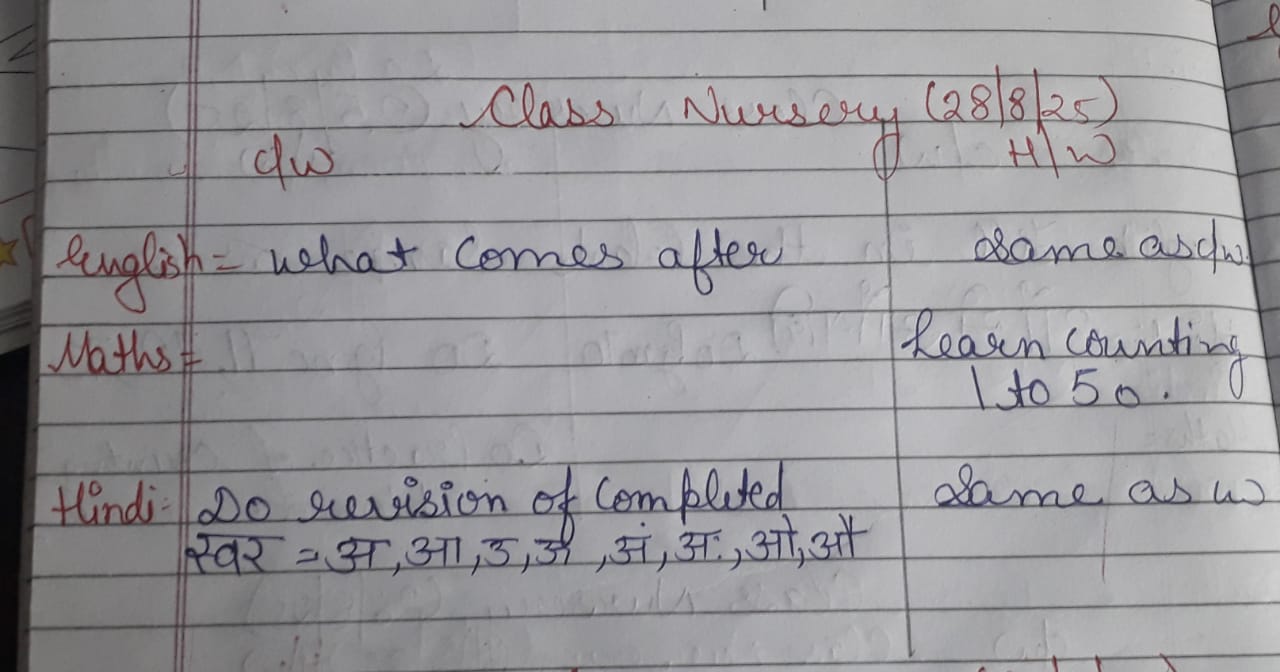 Class Nursery (28/8/25)
c/w H/W
English = what comes after same as c/w.
Maths = Learn counting
1 to 50.
Hindi = Do revision of Completed same as w
स्वर = अ, आ, उ, ऊ, अं, अः, ओ, औ